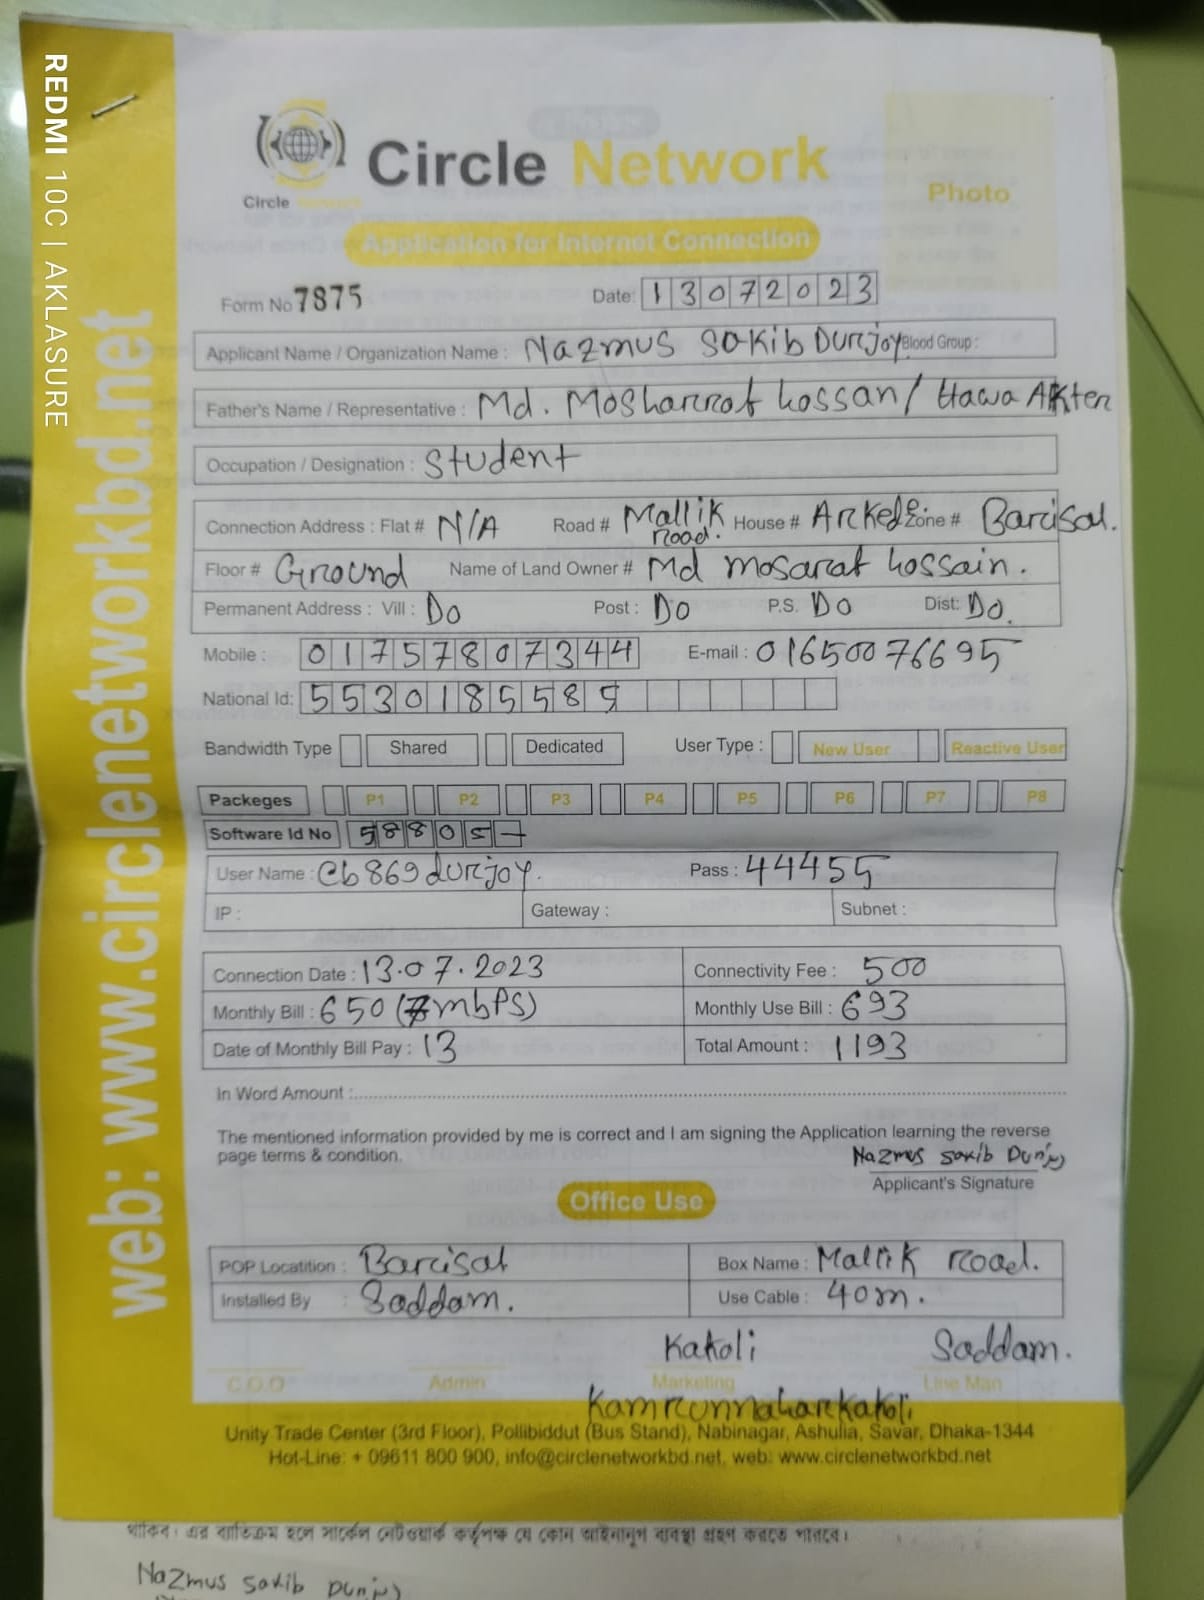 REDMI 10C | AKLASURE
web: www.circlenetworkbd.net
Circle Network
Circle Network
Photo
Application for Internet Connection
Form No 7875 Date: 13072023
Applicant Name / Organization Name : Nazmus Sakib Durjoy Blood Group :
Father's Name / Representative : Md. Mosharraf Hossan / Hawa Akter
Occupation / Designation : Student
Connection Address : Flat # N/A Road # Mallik Road. House # Zone # Barisal.
Floor # Ground Name of Land Owner # Md mosaraf Hossain.
Permanent Address : Vill : Do Post : Do P.S. Do Dist: Do.
Mobile : 01757807344 E-mail : 01650076695
National Id: 5530185585
Bandwidth Type Shared Dedicated User Type : New User Reactive User
Packeges P1 P2 P3 P4 P5 P6 P7 P8
Software Id No 58805
User Name : cb869durjoy. Pass : 44455
IP : Gateway : Subnet :
Connection Date : 13.07.2023 Connectivity Fee : 500
Monthly Bill : 650 (7mbPS) Monthly Use Bill : 693
Date of Monthly Bill Pay : 13 Total Amount : 1193
In Word Amount :
The mentioned information provided by me is correct and I am signing the Application learning the reverse
page terms & condition. Nazmus Sakib Durjoy
Applicant's Signature
Office Use
POP Locatition : Barisal Box Name : Mallik Road.
Installed By : Saddam. Use Cable : 40m.
Kakoli Saddam.
C.O.O Admin Marketing Line Man
Kamrunnaharkakoli
Unity Trade Center (3rd Floor), Pollibiddut (Bus Stand), Nabinagar, Ashulia, Savar, Dhaka-1344
Hot-Line: + 09611 800 900, info@circlenetworkbd.net, web: www.circlenetworkbd.net
থাকিব। এর ব্যতিক্রম হলে সার্কেল নেটওয়ার্ক কর্তৃপক্ষ যে কোন আইনানুগ ব্যবস্থা গ্রহণ করতে পারবে।
Nazmus Sakib Durjoy